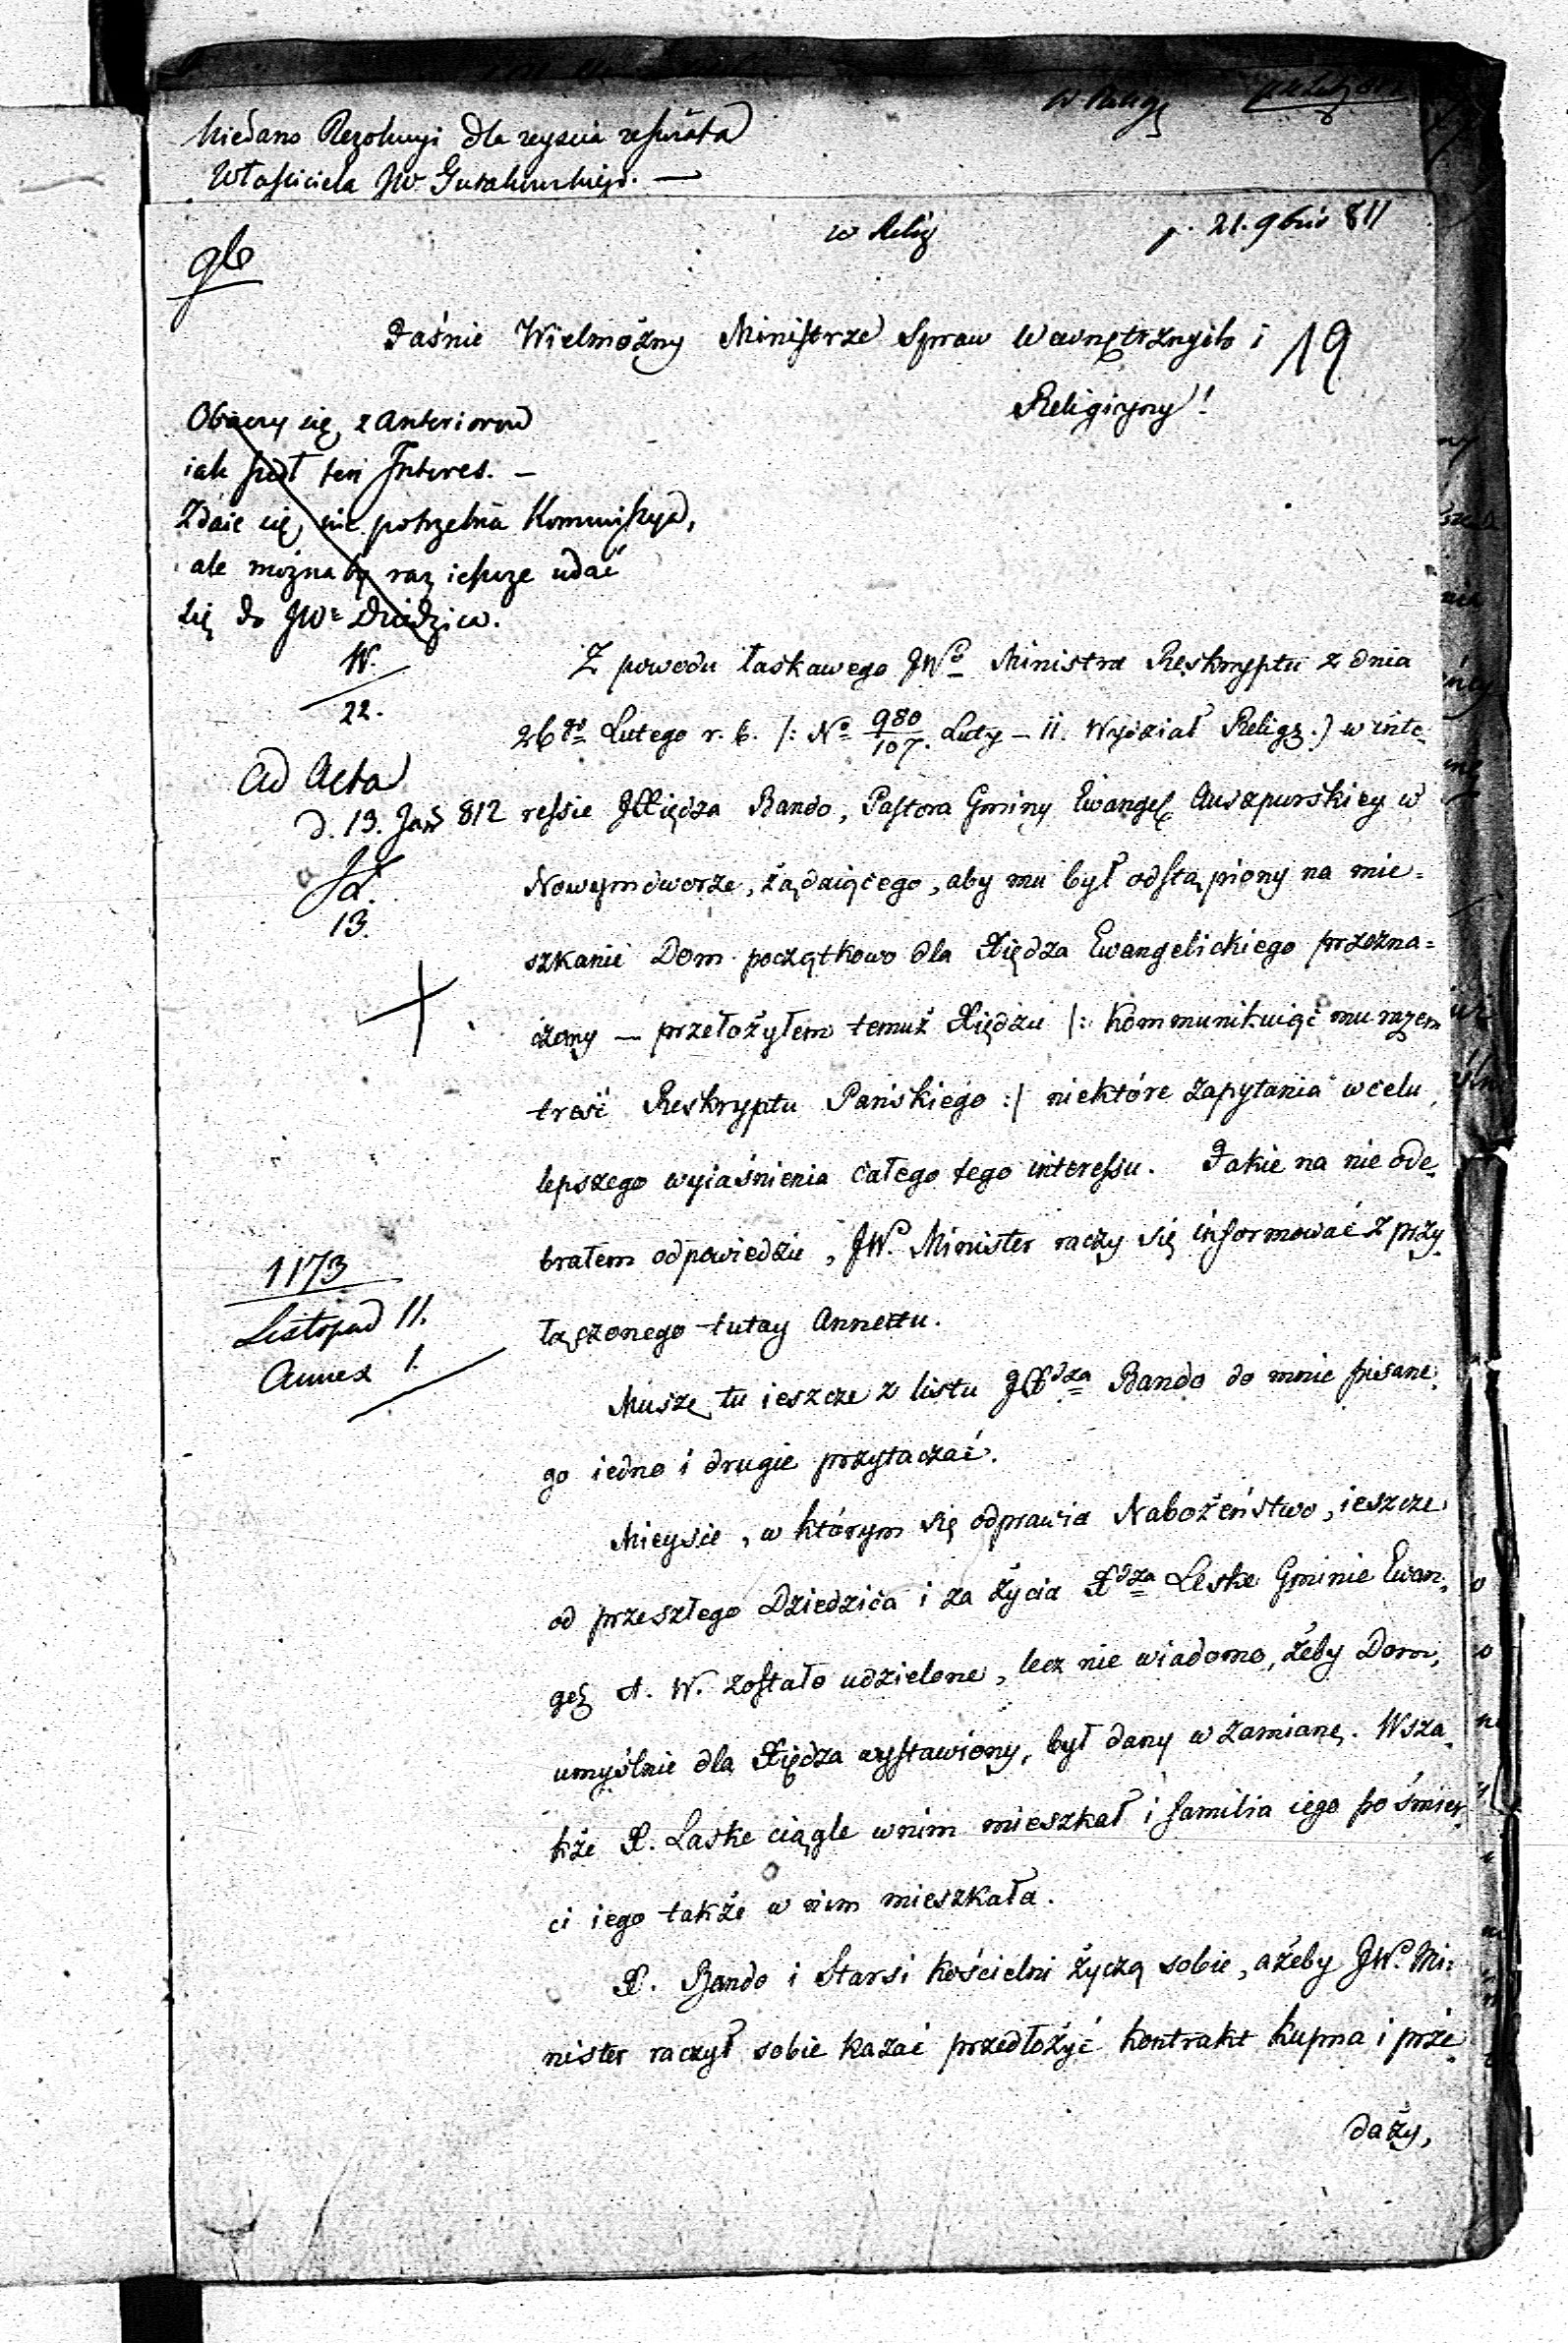 Niedano Rezolucyi dla zeyścia ze świata
Właściciela JW. Gutakowskiego. —
w Relig
w Relig p. 21. 9bris 811
19
Jaśnie Wielmożny Ministrze Spraw Wewnętrznych i
Religiyny!
Obaczy się z anteriorow
iak szedł ten Interes. —
Zdaie się, nie potrzebna Kommissya,
ale możnaby raz ieszcze udać
się do JWo Dziedzica.
W.
22.
Ad Acta
d. 13. Jan 812
13.
1173
Listopad 11.
Annex 1.
Z powodu łaskawego JWo Ministra Reskryptu z dnia
26go Lutego r. b. /: No 980/107. Luty – 11. Wydział Relig.) w inte-
ressie JXiędza Bando, Pastora Gminy Ewangel Auszpurskiey w
Nowymdworze, żądaiącego, aby mu był odstąpiony na mie-
szkanie Dom początkowo dla Xiędza Ewangelickiego przezna=
czony — przełożyłem temuż Xiędzu /: Kommunikuiąc mu razem
treść Reskryptu Pańskiego :/ niektóre zapytania w celu
lepszego wyiaśnienia całego tego interessu. Jakie na nie ode-
brałem odpowiedzie, JW. Minister raczy się informować z przy-
łączonego tutay Annexu.
Muszę tu ieszcze z listu JXdza Bando do mnie pisane-
go iedno i drugie przytaczać.
Mieysce, w którym się odprawia Nabożeństwo, ieszcze
od przeszłego Dziedzica i za życia Xdza Leske Gminie Ewan-
gel A. W. zostało udzielone, lecz nie wiadomo, żeby Dom,
umyślnie dla Xiędza wystawiony, był dany w zamianę. Wsza-
kże X. Laske ciągle w nim mieszkał i familia iego po śmier-
ci iego także w nim mieszkała.
X. Bando i Starsi Kościelni życzą sobie, ażeby JW. Mi-
nister raczył sobie kazać przedłożyć Kontrakt Kupna i prze-
daży,